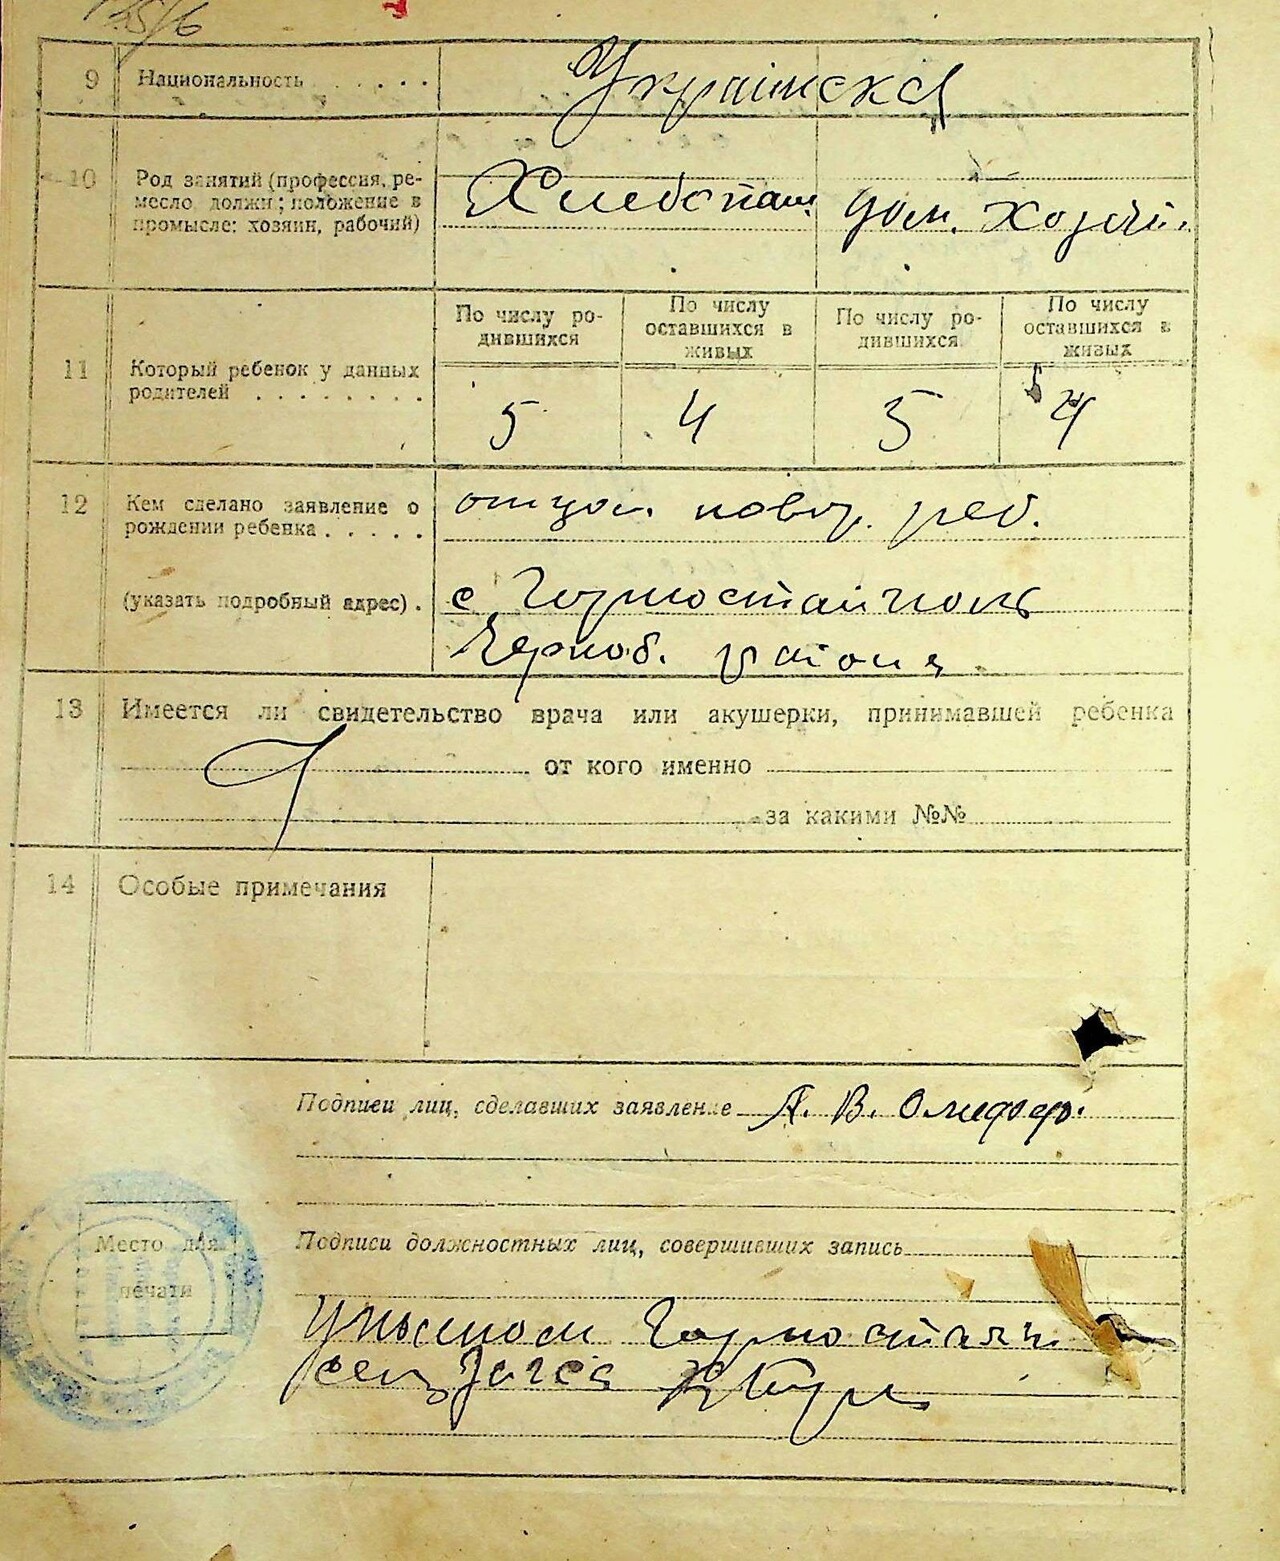 9 Национальность Українська
10 Род занятий (профессия, ре-
месло должн; положение в
промысле: хозяин, рабочий)
Хлебопаш. дом. хозяй.
По числу ро-
дившихся
По числу
оставшихся в
живых
По числу ро-
дившихся
По числу
оставшихся в
живых
11 Который ребенок у данных
родителей
5 4 5 4
12 Кем сделано заявление о
рождении ребенка
отцом новор. реб.
(указать подробный адрес). с Горностайполь
Черноб. района
13 Имеется ли свидетельство врача или акушерки, принимавшей ребенка
от кого именно
за какими №№
14 Особые примечания
Подписи лиц, сделавших заявление А. В. Олифер.
Подписи должностных лиц, совершивших запись
Место для
печати
Горностайп.
Загса